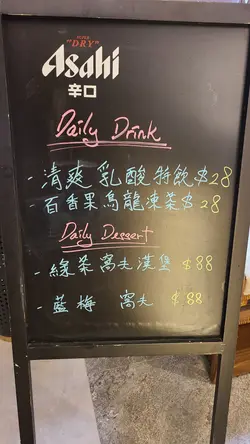 SUPER
"DRY"
Asahi
辛口
Daily Drink
- 清爽乳酸特飲 $28
- 百香果烏龍凍茶 $28
Daily Dessert
- 綠茶窩夫漢堡 $88
- 藍梅 窩夫 $88